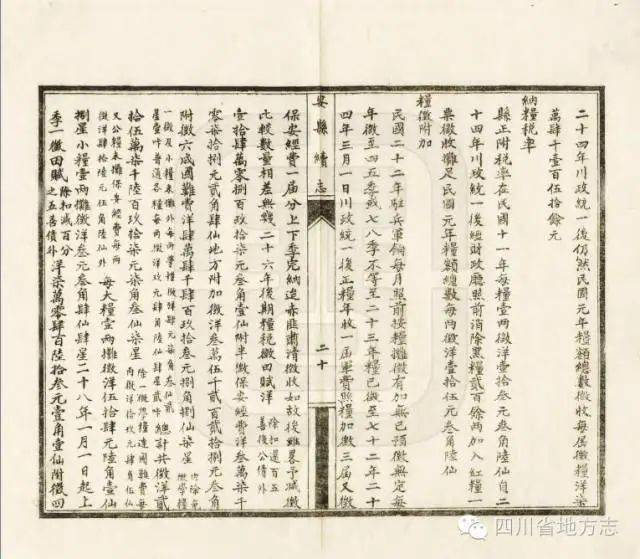 二十四年川政統一後仍然民國元年糧額總數徵收每屆徵糧洋柒
萬肆千壹百伍拾餘元
納糧稅率
縣正附稅率在民國十一年每糧壹兩徵洋壹拾叁元叁角陸仙自二
十四年川政統一後經財政廳照前消除黑糧貳百餘兩加入紅糧一
票徵收攤足民國元年糧額總數每兩徵洋壹拾伍元叁角陸仙
糧徵附加
民國二十二年駐兵軍餉每月照前按糧攤徵有加無已預徵無定每
年徵至四五季或七八季不等至二十三年糧已徵至七十二年二十
四年三月一日川政統一後正糧年收一屆軍費照糧加徵三屆又徵
安縣續志
二十
保安經費一屆分上下季完納追赤匪肅清徵收如故後雖畧予減徵
比較數量相差無幾二十六年後期糧稅徵田賦洋除扣還百五善後公債外
壹拾肆萬零捌百玖拾柒元叁角壹仙附半徵保安經費洋叁萬柒千
零柒拾捌元貳角肆仙地方附加徵洋叁萬伍千貳百貳拾捌元叁角
附徵六成國難費洋肆萬肆千肆百玖拾玖元肆角捌仙柒星
總計共徵洋貳
拾伍萬柒千陸百玖拾柒元柒角叁仙柒星
又公糧未攤保安經費每兩徵洋肆拾陸元伍角陸仙外
每大糧壹兩攤徵洋伍拾肆元陸角壹仙
捌星小糧壹兩攤徵洋叁元叁角肆仙肆星二十八年一月一日起上
季一徵田賦除扣減百分之五善債外洋柒萬零肆百陸拾叁元壹角壹仙附徵四
四川省地方志